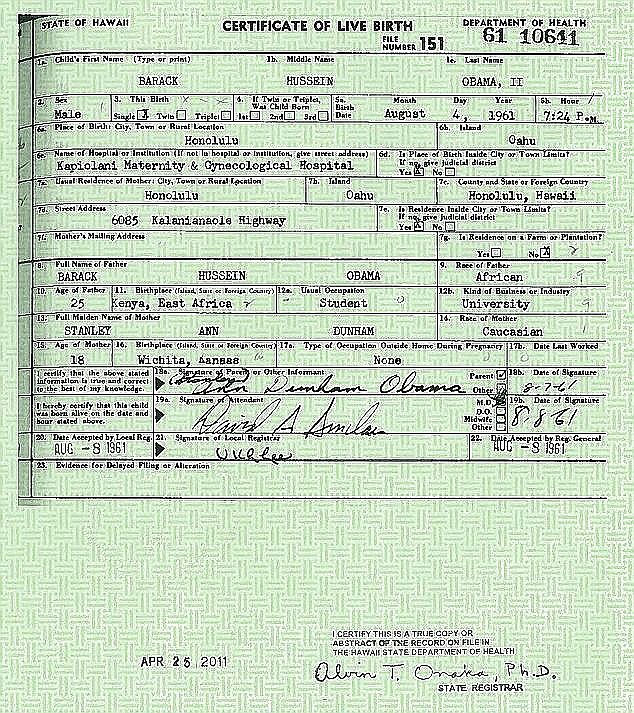 STATE OF HAWAII CERTIFICATE OF LIVE BIRTH DEPARTMENT OF HEALTH
FILE NUMBER 151 61 10641
1a. Child's First Name (Type or print) 1b. Middle Name 1c. Last Name
BARACK HUSSEIN OBAMA, II
2. Sex 3. This Birth 4. If Twin or Triplet, Was Child Born 5a. Birth Date Month Day Year 5b. Hour
Male Single X Twin Triplet 1st 2nd 3rd August 4, 1961 7:24 P.M.
6a. Place of Birth: City, Town or Rural Location 6b. Island
Honolulu Oahu
6c. Name of Hospital or Institution (If not in hospital or institution, give street address) 6d. Is Place of Birth Inside City or Town Limits? If no, give judicial district
Kapiolani Maternity & Gynecological Hospital Yes X No
7a. Usual Residence of Mother: City, Town or Rural Location 7b. Island 7c. County and State or Foreign Country
Honolulu Oahu Honolulu, Hawaii
7d. Street Address 7e. Is Residence Inside City or Town Limits? If no, give judicial district
6085 Kalanianaole Highway Yes X No
7f. Mother's Mailing Address 7g. Is Residence on a Farm or Plantation?
Yes No X
8. Full Name of Father 9. Race of Father
BARACK HUSSEIN OBAMA African 9
10. Age of Father 11. Birthplace (Island, State or Foreign Country) 12a. Usual Occupation 12b. Kind of Business or Industry
25 Kenya, East Africa Student 0 University 9
13. Full Maiden Name of Mother 14. Race of Mother
STANLEY ANN DUNHAM Caucasian 1
15. Age of Mother 16. Birthplace (Island, State or Foreign Country) 17a. Type of Occupation Outside Home During Pregnancy 17b. Date Last Worked
18 Wichita, Kansas None
I certify that the above stated information is true and correct to the best of my knowledge. 18a. Signature of Parent or Other Informant Parent Other 18b. Date of Signature
(Stanley) Ann Dunham Obama 8-7-61
I hereby certify that this child was born alive on the date and hour stated above. 19a. Signature of Attendant M.D. D.O. Midwife Other 19b. Date of Signature
David A Sinclair 8-8-61
20. Date Accepted by Local Reg. 21. Signature of Local Registrar 22. Date Accepted by Reg. General
AUG -8 1961 U K L Lee AUG -8 1961
23. Evidence for Delayed Filing or Alteration
APR 25, 2011
I CERTIFY THIS IS A TRUE COPY OR
ABSTRACT OF THE RECORD ON FILE IN
THE HAWAII STATE DEPARTMENT OF HEALTH
Alvin T. Onaka, Ph.D.
STATE REGISTRAR